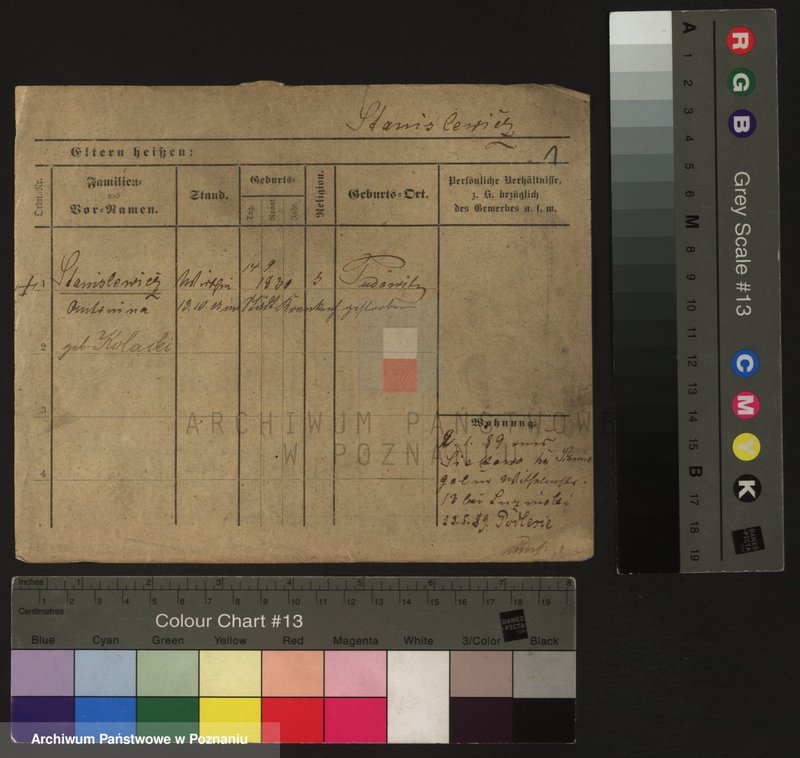 Stanislewicz
1
Eltern heißen:
Ordn.-Nr.
Familien-
und
Vor-Namen.
Stand.
Geburts-
Tag.
Monat.
Jahr.
Religion.
Geburts-Ort.
Persönliche Verhältnisse,
z. B. bezüglich
des Gewerbes u. s. w.
1
Stanislewicz
Wirthin
14 9
1830
Antonina
13.10. im Städt. Krankenh. gestorben
2
geb.
3
4
Wohnung
2. 1. 89 aus
Wilhelmstr.
13 bei
23.5.89.
ARCHIWUM PAŃSTWOWE
W POZNANIU
Inches 1 2 3 4 5 6 7 8
Centimetres 1 2 3 4 5 6 7 8 9 10 11 12 13 14 15 16 17 18 19
Colour Chart #13
DANES
PICTA
Blue Cyan Green Yellow Red Magenta White 3/Color Black
Archiwum Państwowe w Poznaniu
R
G
B
Grey Scale #13
C
M
Y
K
DANES
PICTA
A 1 2 3 4 5 6 M 8 9 10 11 12 13 14 15 B 17 18 19